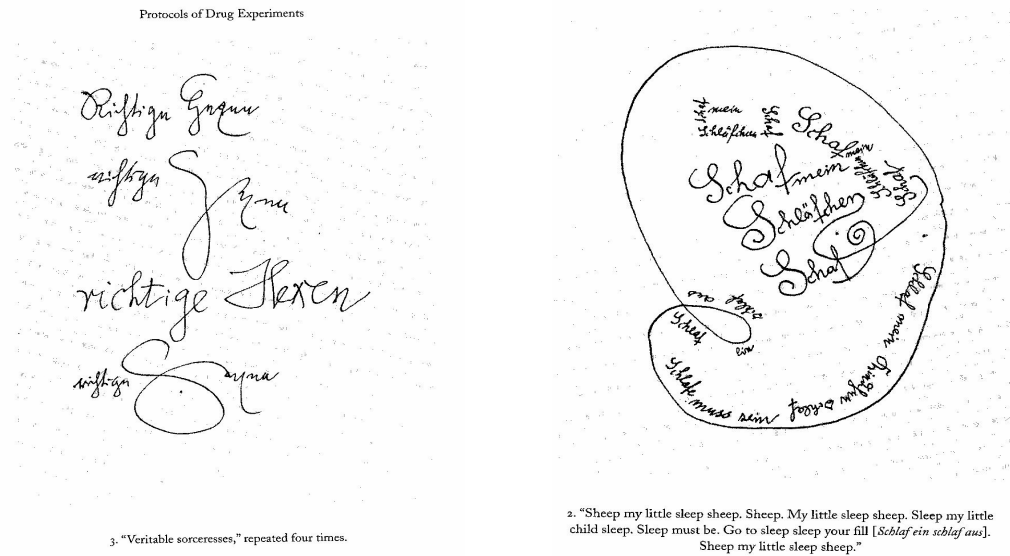 Protocols of Drug Experiments
Richtige Hexen
richtige Hexen
richtige Hexen
richtige Hexen
3. “Veritable sorceresses,” repeated four times.
mein
Schläfchen
Schaf
Schaf
mein
Schläfchen
Schaf
Schaf mein
Schläfchen
Schaf
Schlaf mein Kindlein schlaf
Schlafe muss sein
Schlaf
ein
schlaf
aus
2. “Sheep my little sleep sheep. Sheep. My little sleep sheep. Sleep my little
child sleep. Sleep must be. Go to sleep sleep your fill [Schlaf ein schlaf aus].
Sheep my little sleep sheep.”